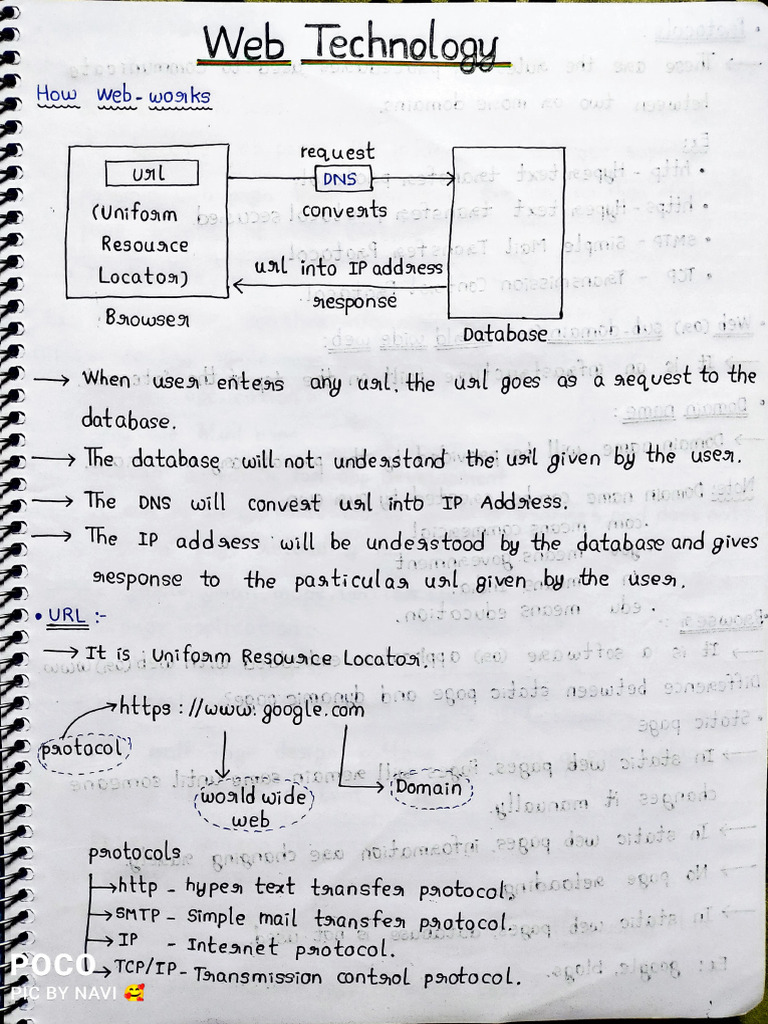 Web Technology
How web-works
url
(Uniform
Resource
Locator)
Browser
request
DNS
converts
url into IP address
response
Database
→ When user enters any url. the url goes as a request to the
database.
→ The database will not understand the url given by the user.
→ The DNS will convert url into IP Address.
→ The IP address will be understood by the database and gives
response to the particular url given by the user.
• URL :-
→ It is Uniform Resource Locator.
https://www.google.com
protocol
world wide
web
Domain
protocols
→ http - hyper text transfer protocol.
→ SMTP - Simple mail transfer protocol.
→ IP - Internet protocol.
→ TCP/IP - Transmission control protocol.
POCO
PIC BY NAVI 🥰